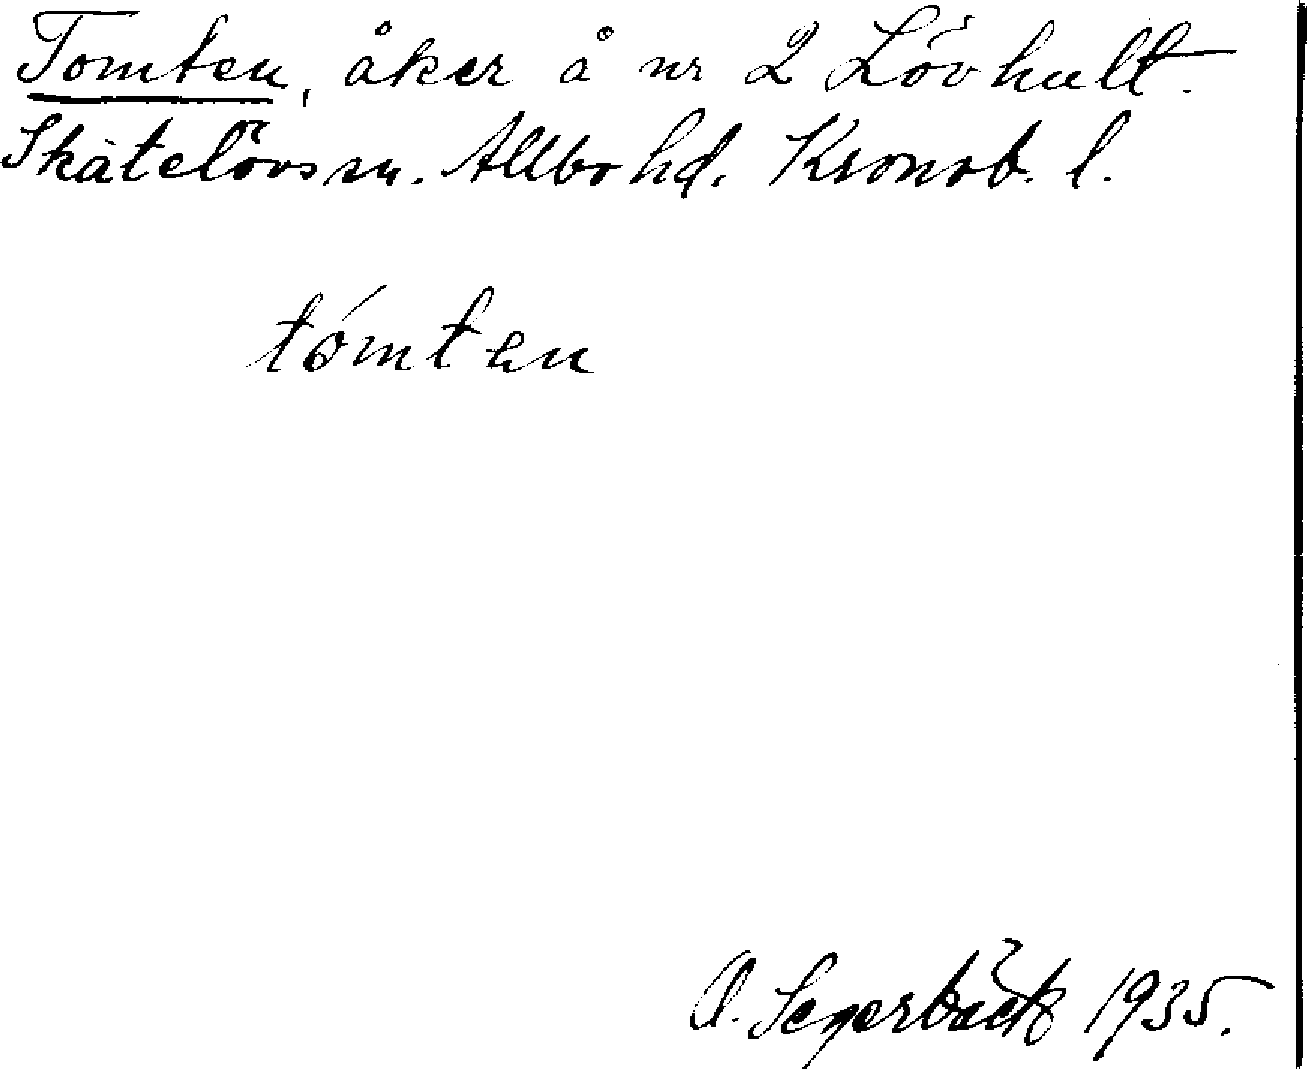 Tomten, åker å nr 2 Lövhult.
Skatelövs sn. Allbo hd. Kronob. l.
tómten
A. Segerbäck 1935.